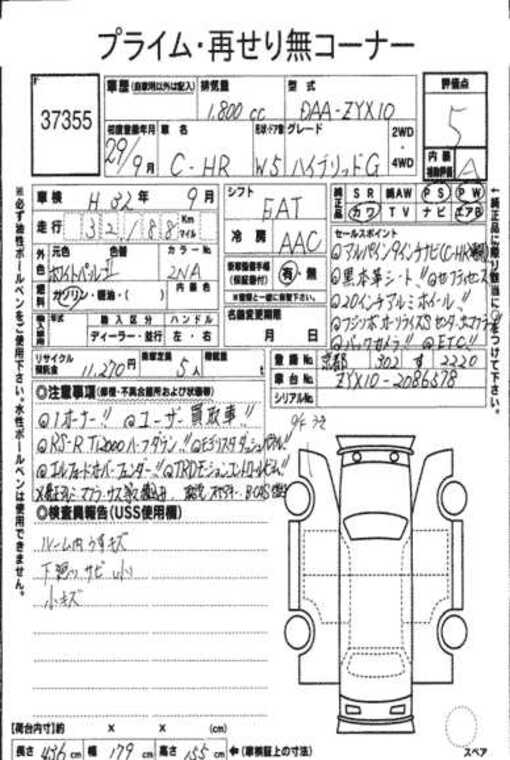 プライム・再せり無コーナー
37355
車歴 (自家用以外は記入)
排気量
型式
評価点
1,800 cc
DAA-ZYX10
5
初度登録年月
車名
形状・ドア数
グレード
2WD
・
4WD
29/9月
C-HR
W5
ハイブリッドG
内装
補助評価
A
車検 H 32年 9月
シフト
FAT
純正品
SR 純AW PS PW
カワ TV ナビ エアB
走行 32188 Km マイル
冷房
AAC
セールスポイント
◎アルパイン9インチナビ(C-HR専用)
外色
元色
色替
カラーNo.
ホワイトパールII
2NA
有・無
◎黒本革シート!! ◎セーフティセンス
燃料
ガソリン・軽油・( )
内装色
◎20インチアルミホイール!!
年式
輸入区分
ハンドル
ディーラー・並行
左・右
名義変更期限
月 日
◎バックカメラ!! ◎ETC!!
リサイクル
預託金
11,270円
乗車定員
5人
積載量
t
登録No. 京都 302 す 2220
車台No. ZYX10-2086878
シリアルNo.
◎注意事項(修復・不具合箇所および状態等)
◎1オーナー!! ◎ユーザー買取車!!
◎RS-R Ti2000ハーフダウン!!
◎TRDモーションコントロールビーム!!
◎検査員報告(USS使用欄)
ルーム内うすキズ
下廻り サビ 小
小キズ
※必ず油性ボールペンをご使用下さい。水性ボールペンは使用できません。
【荷台内寸】約 × × (cm)
長さ 436 cm 幅 179 cm 高さ 155 cm ←(車検証上の寸法)
スペア